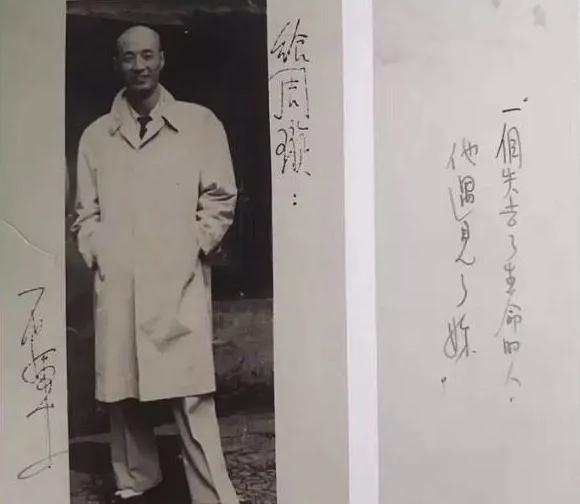 給周璇：
石揮
一個失去了生命的人.
他遇見了妳.